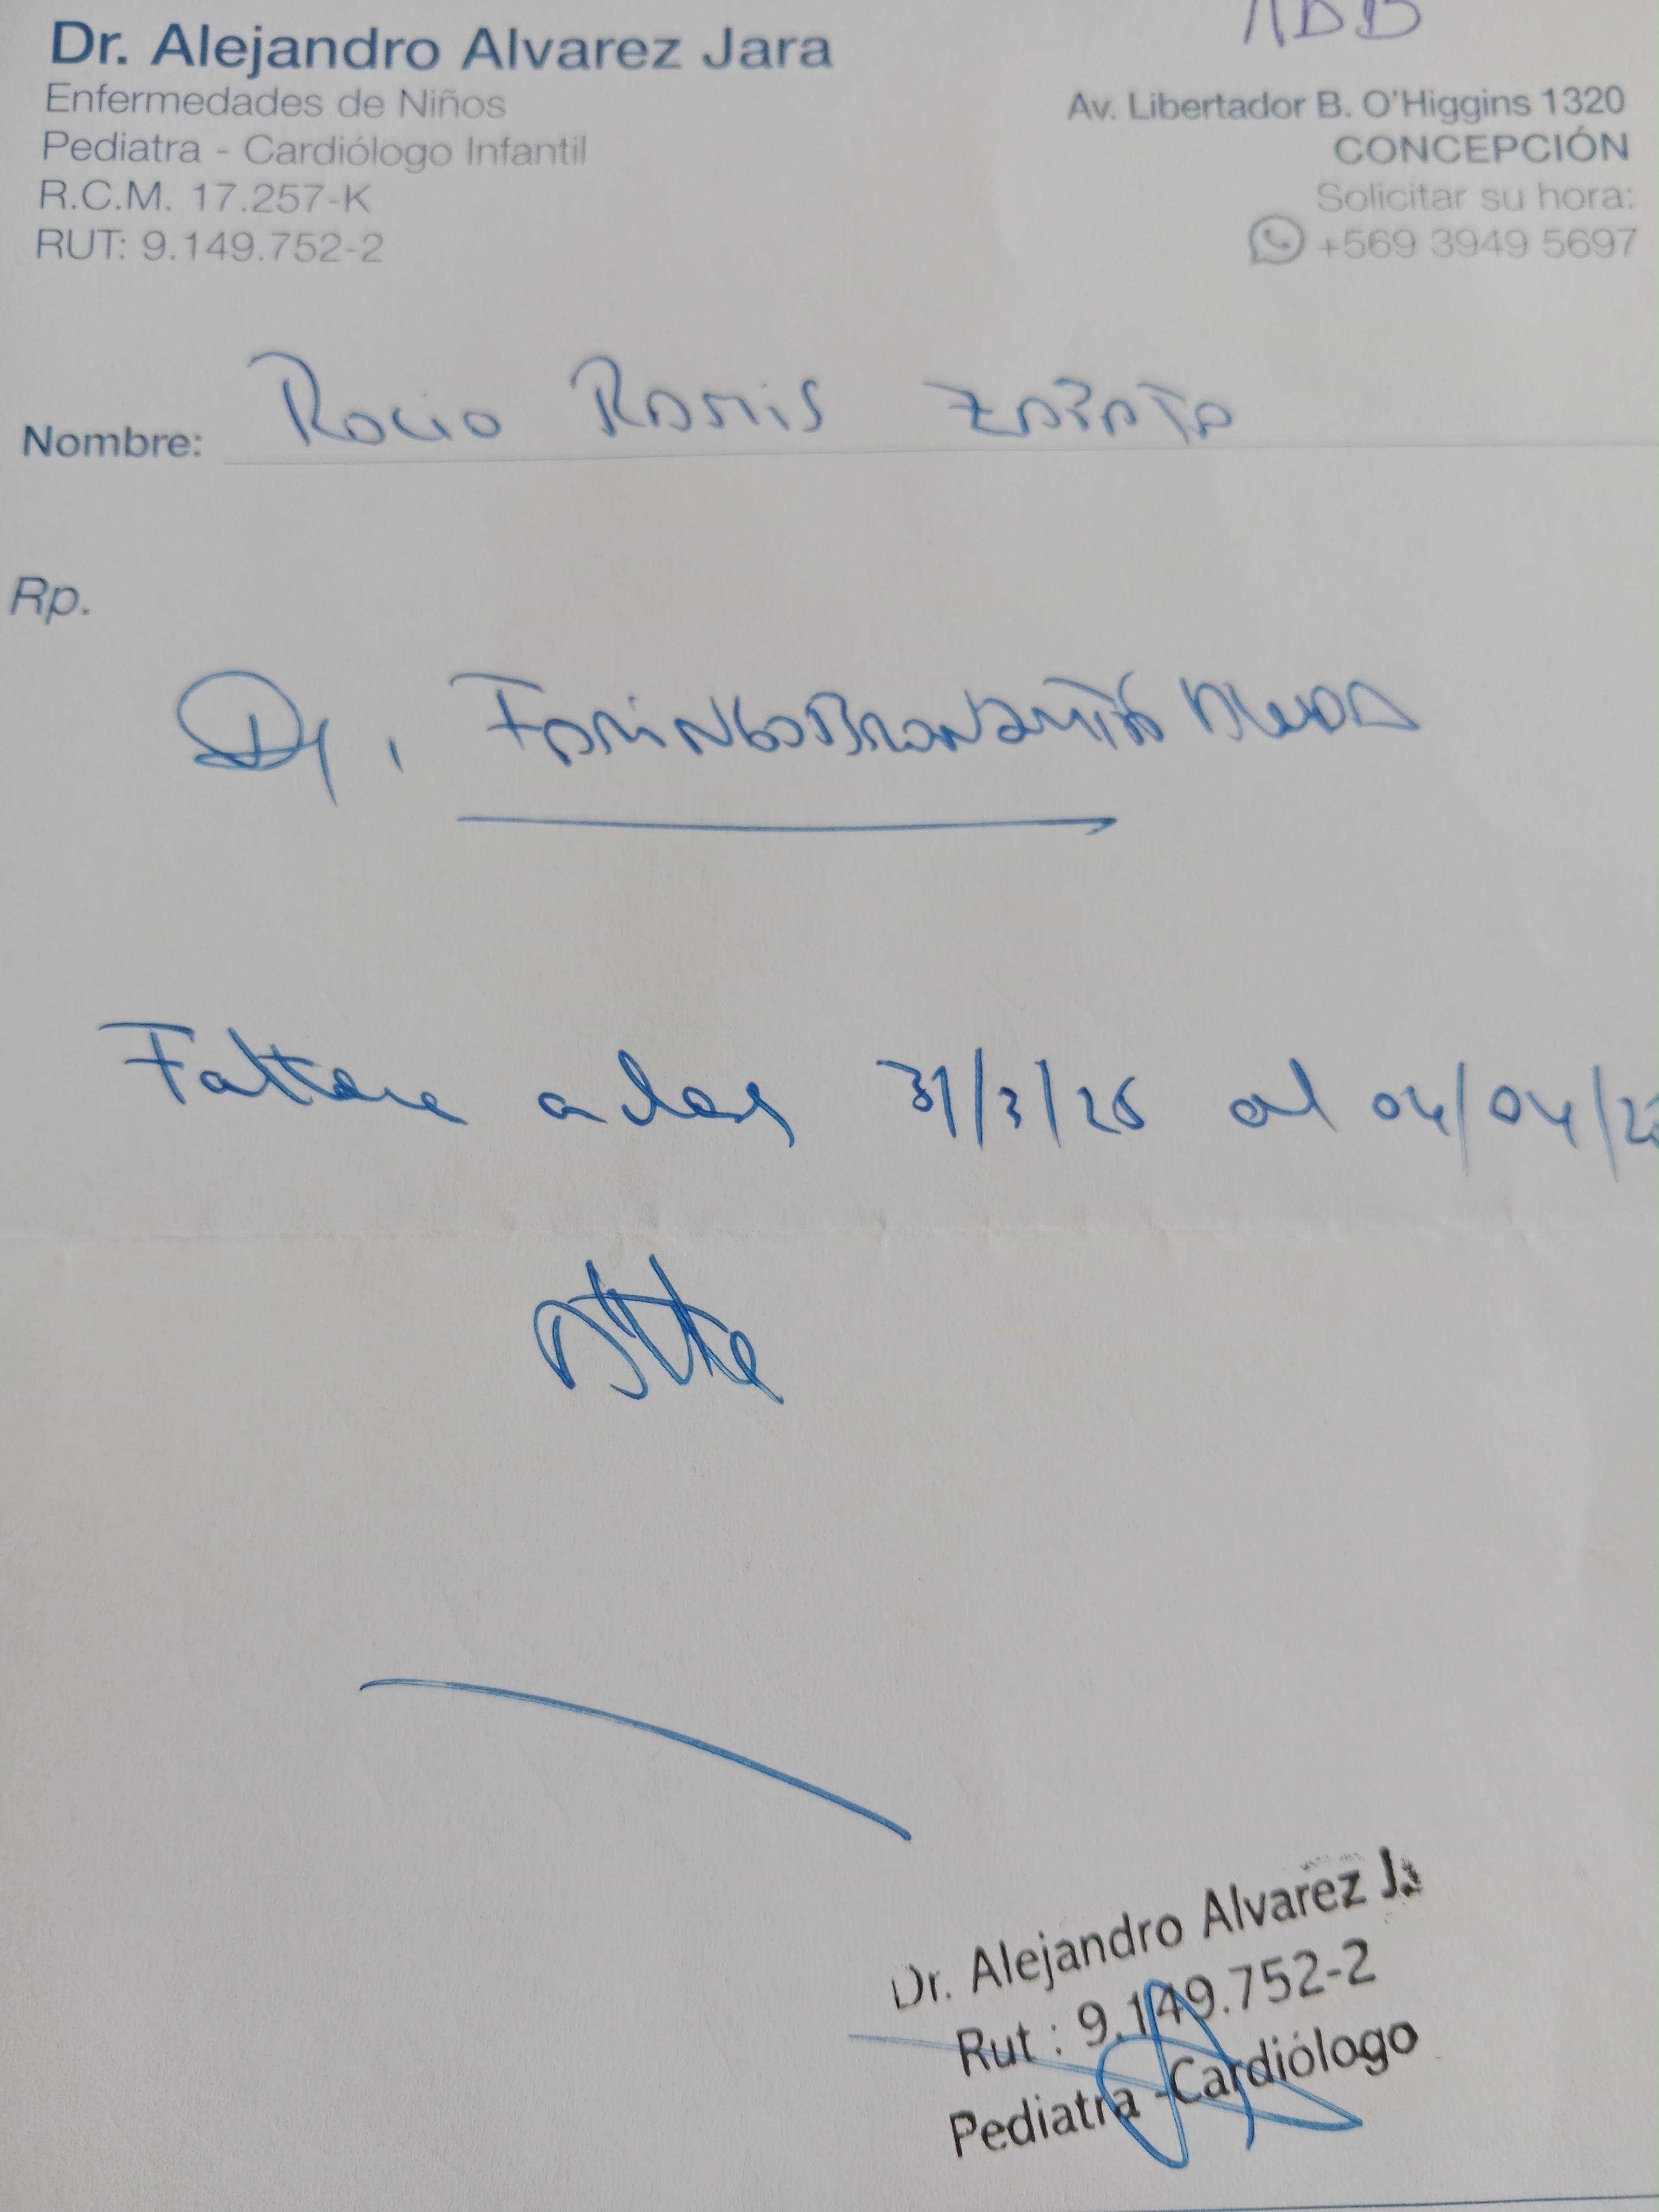 Dr. Alejandro Alvarez Jara
Enfermedades de Niños
Pediatra - Cardiólogo Infantil
R.C.M. 17.257-K
RUT: 9.149.752-2
Av. Libertador B. O'Higgins 1320
CONCEPCIÓN
Solicitar su hora:
+569 3949 5697
Nombre: Rocio Ramis Zapata
Rp.
Dg. Faringobronquitis Aguda
a clases 31/3/25 al 04/04/
Atte
Dr. Alejandro Alvarez J.
Rut : 9.149.752-2
Pediatra - Cardiólogo